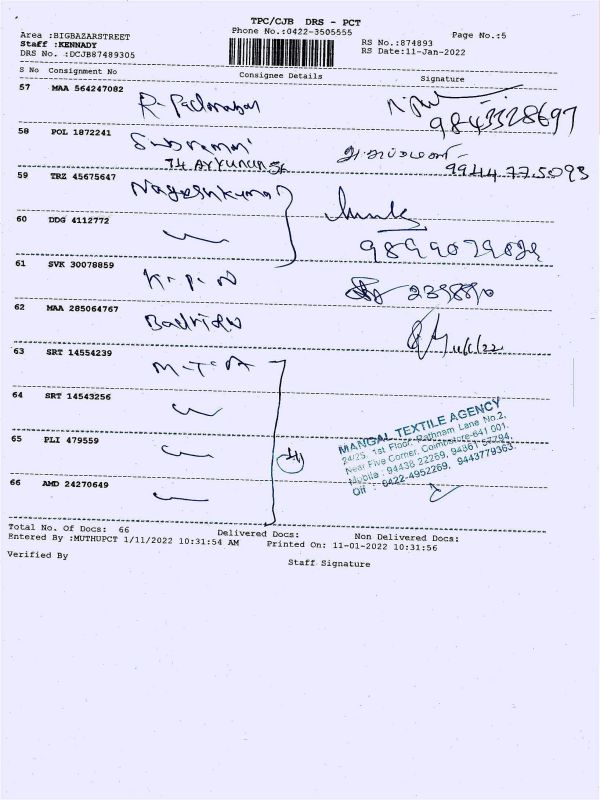 TPC/CJB DRS - PCT
Phone No.:0422-3505555
Page No.:5
Area :BIGBAZARSTREET
Staff :KENNADY
DRS No. :DCJB87489305
RS No.:874893
RS Date:11-Jan-2022
S No Consignment No Consignee Details Signature
57 MAA 564247082 R.
9843328697
58 POL 1872241
74 Ayyanan St
9944 77 5093
59 TRZ 45675647 Nageshkumar
60 DDG 4112772
61 SVK 30078859 K-P-N
62 MAA 285064767
11/1/22
63 SRT 14554239 M-T-A
64 SRT 14543256
65 PLI 479559
4
66 AMD 24270649
MANGAL TEXTILE AGENCY
24/25, 1st Floor, Rathnam Lane No.2,
Near Five Corner, Coimbatore-641 001.
Mobile : 94438 22269, 94361 57794,
Off : 0422-4952269, 9443779363
Total No. Of Docs: 66 Delivered Docs: Non Delivered Docs:
Entered By :MUTHUPCT 1/11/2022 10:31:54 AM Printed On: 11-01-2022 10:31:56
Verified By
Staff Signature